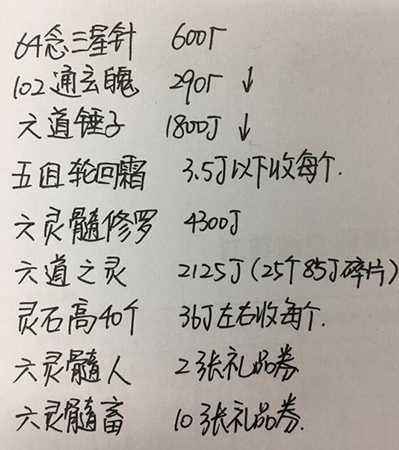 64念三星针 600J
102通玄魄 290J ↓
六道锤子 1800J ↓
五自轮回霜 3.5J以下收每个.
六灵髓修罗 4300J
六道之灵 2125J(25个85J碎片)
灵石高40个 36J左右收每个.
六灵髓人 2张礼品券
六灵髓畜 10张礼品券.